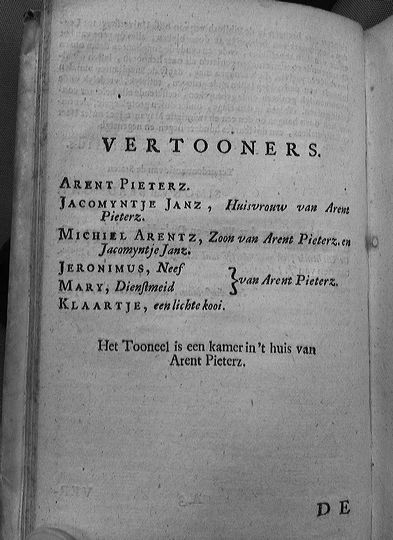 VERTOONERS.
ARENT PIETERZ.
JACOMYNTJE JANZ, Huisvrouw van Arent
Pieterz.
MICHIEL ARENTZ, Zoon van Arent Pieterz. en
Jacomyntje Janz.
JERONIMUS, Neef
MARY, Dienſtmeid } van Arent Pieterz.
KLAARTJE, een lichte kooi.
Het Tooneel is een kamer in 't huis van
Arent Pieterz.
DE